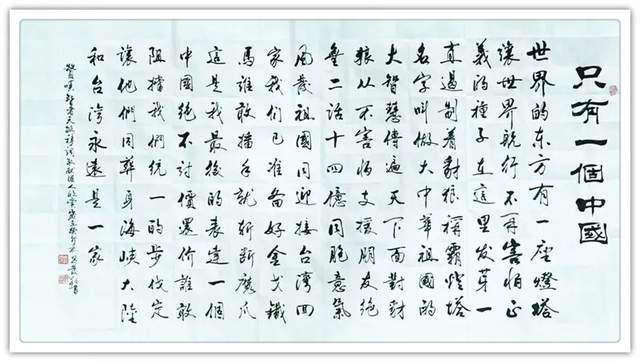 只有一個中國
世界的东方有一座燈塔
讓世界航行不再害怕正
義的種子在這里发芽一
直遏制着豺狼稱霸燈塔
名字叫做大中華祖國的
大智慧传遍天下面對豺
狼从不害怕支援朋友绝
無二话十四億同胞意氣
風發祖國同迎接台湾回
家我们已准备好金戈鐵
馬誰敢插手就斬断魔爪
這是我最後的表達一個
中國绝不讨價還价誰敢
阻擋我們统一的步伐定
讓他們同葬身海峡大陸
和台湾永遠是一家